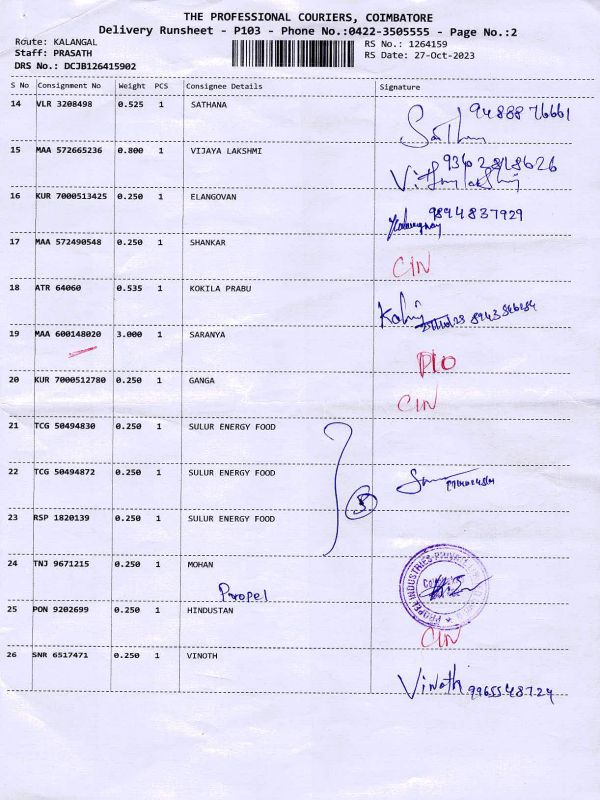 THE PROFESSIONAL COURIERS, COIMBATORE
Delivery Runsheet - P103 - Phone No.:0422-3505555 - Page No.:2
Route: KALANGAL
RS No.: 1264159
Staff: PRASATH
RS Date: 27-Oct-2023
DRS No.: DCJB126415902
S No Consignment No Weight PCS Consignee Details Signature
14 VLR 3208498 0.525 1 SATHANA 9488876661
15 MAA 572665236 0.800 1 VIJAYA LAKSHMI
16 KUR 7000513425 0.250 1 ELANGOVAN 9894837929
17 MAA 572490548 0.250 1 SHANKAR CIN
18 ATR 64060 0.535 1 KOKILA PRABU
19 MAA 600148020 3.000 1 SARANYA
20 KUR 7000512780 0.250 1 GANGA CIN
21 TCG 50494830 0.250 1 SULUR ENERGY FOOD
22 TCG 50494872 0.250 1 SULUR ENERGY FOOD
23 RSP 1820139 0.250 1 SULUR ENERGY FOOD
24 TNJ 9671215 0.250 1 MOHAN
Propel
PROPEL INDUSTRIES PRIVATE
25 PON 9202699 0.250 1 HINDUSTAN CIN
26 SNR 6517471 0.250 1 VINOTH Vinoth 9965548724